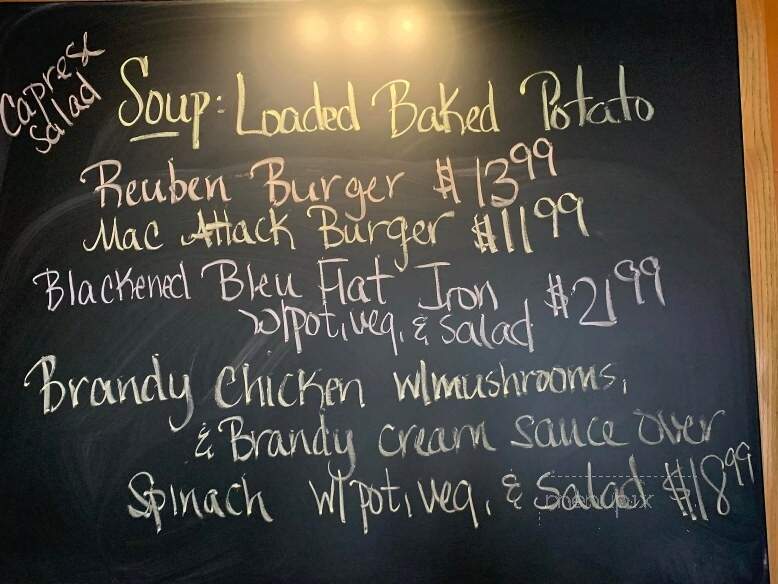 Caprese
Salad
Soup: Loaded Baked Potato
Reuben Burger $13.99
Mac Attack Burger $11.99
Blackened Bleu Flat Iron $21.99
w/pot, veg, & salad
Brandy Chicken w/mushrooms,
& Brandy cream sauce over
Spinach w/ pot, veg, & Salad $18.99
menupix